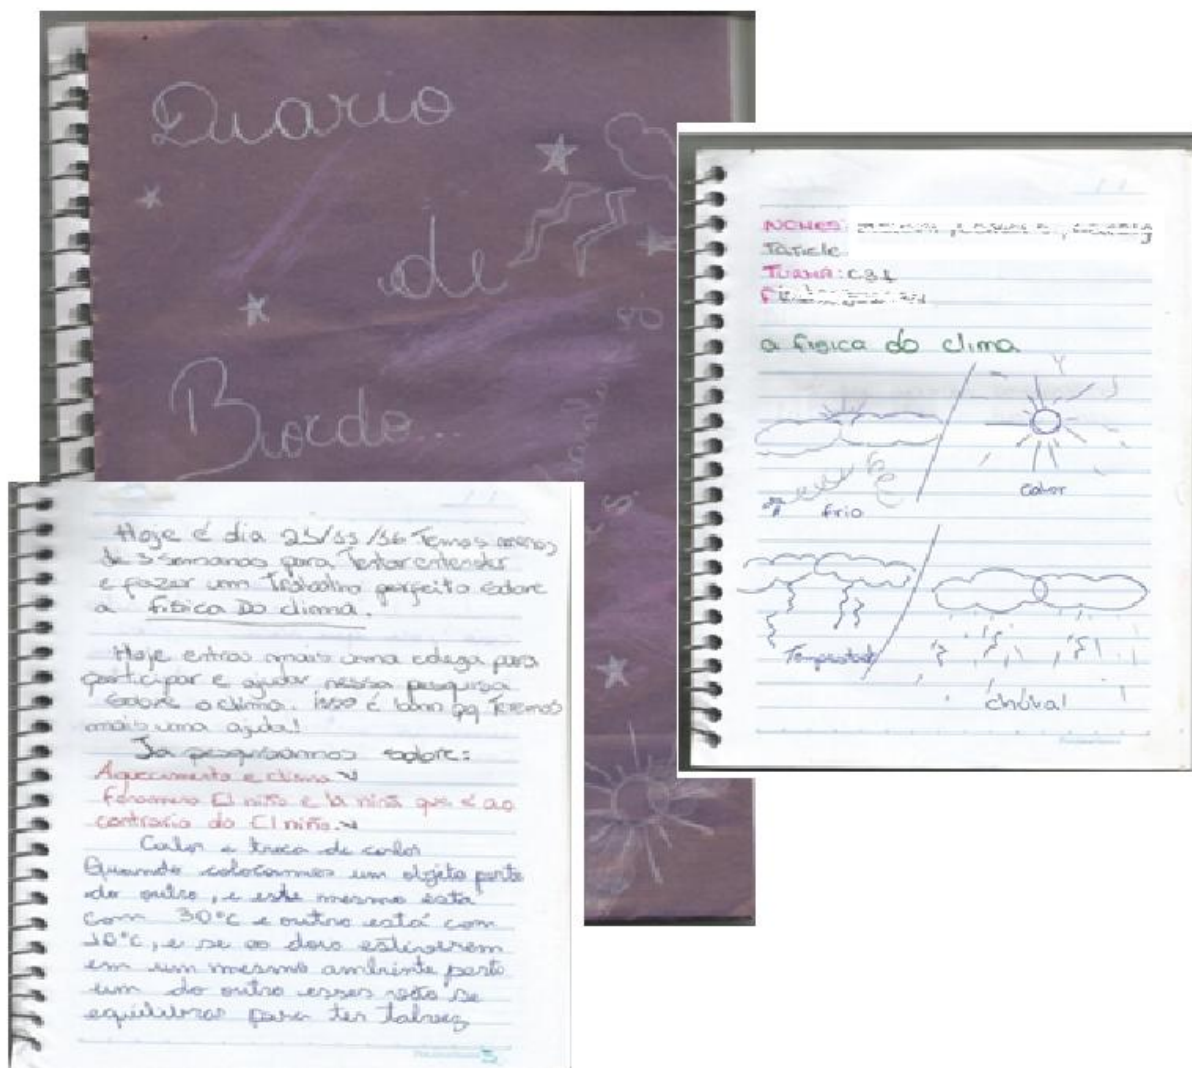 Diario
de
Bordo...
NOMES:
Tatiele
TURMA: C31
a fisica do clima
frio
calor
Tempestade
chuva!
Hoje é dia 25/11/16 Temos menos
de 3 semanas para Tentar entender
e fazer um Trabalho perfeito sobre
a fisica Do clima.
Hoje entrou mais uma colega para
participar e ajudar nessa pesquisa
sobre o clima. isso é bom pq Teremos
mais uma ajuda!
Ja pesquisamos sobre:
Aquecimento e clima
fenomeno El niño e la niña que é ao
contrario do El niño.
Calor e troca de calor
Quando colocarmos um objeto perto
do outro, e este mesmo está
com 30°C e outro está com
10°C, e se os dois estiverem
em um mesmo ambiente perto
um do outro esses vão se
equilibrar para ter talvez